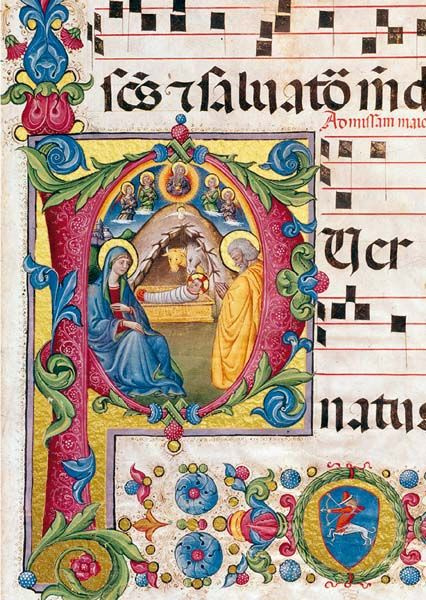 sc̄s ⁊ saluatō m̄d
Ad missam maio
PUer
natus